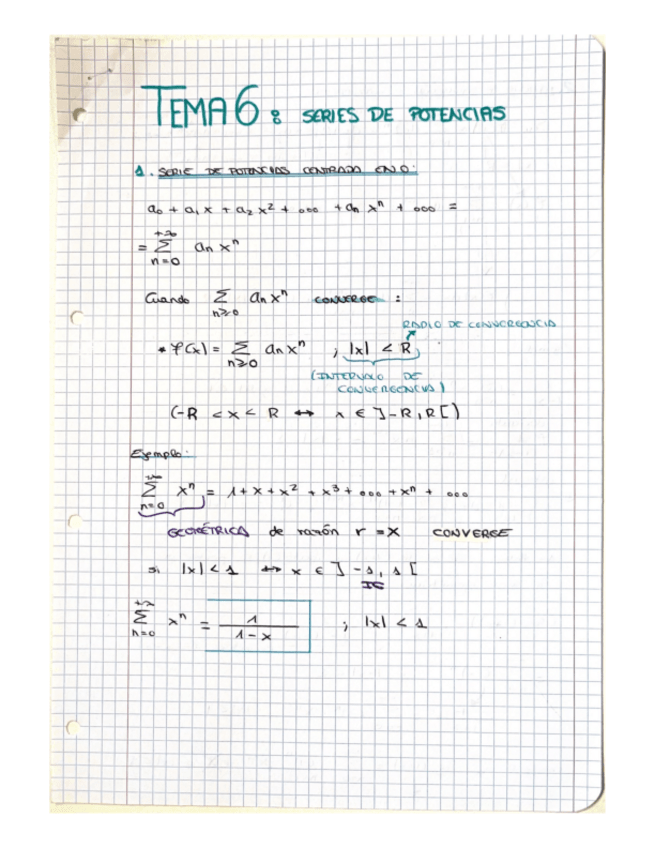 TEMA 6: SERIES DE POTENCIAS
1. SERIE DE POTENCIAS CENTRADA EN 0:
a₀ + a₁ x + a₂ x² + ooo + aₙ xⁿ + ooo =
= +∞ Σ n=0 aₙ xⁿ
Cuando Σ n≥0 aₙ xⁿ CONVERGE :
RADIO DE CONVERGENCIA
* φ(x) = Σ n≥0 aₙ xⁿ ; |x| < R ;
(INTERVALO DE
CONVERGENCIA)
(-R < x < R ↔ x ∈ ]-R, R[)
Ejemplo:
+∞ Σ n=0 xⁿ = 1 + x + x² + x³ + ooo + xⁿ + ooo
GEOMÉTRICA de razón r = x CONVERGE
si |x| < 1 ↔ x ∈ ] -1, 1 [
IC
+∞ Σ n=0 xⁿ = 1 / (1 - x) ; |x| < 1